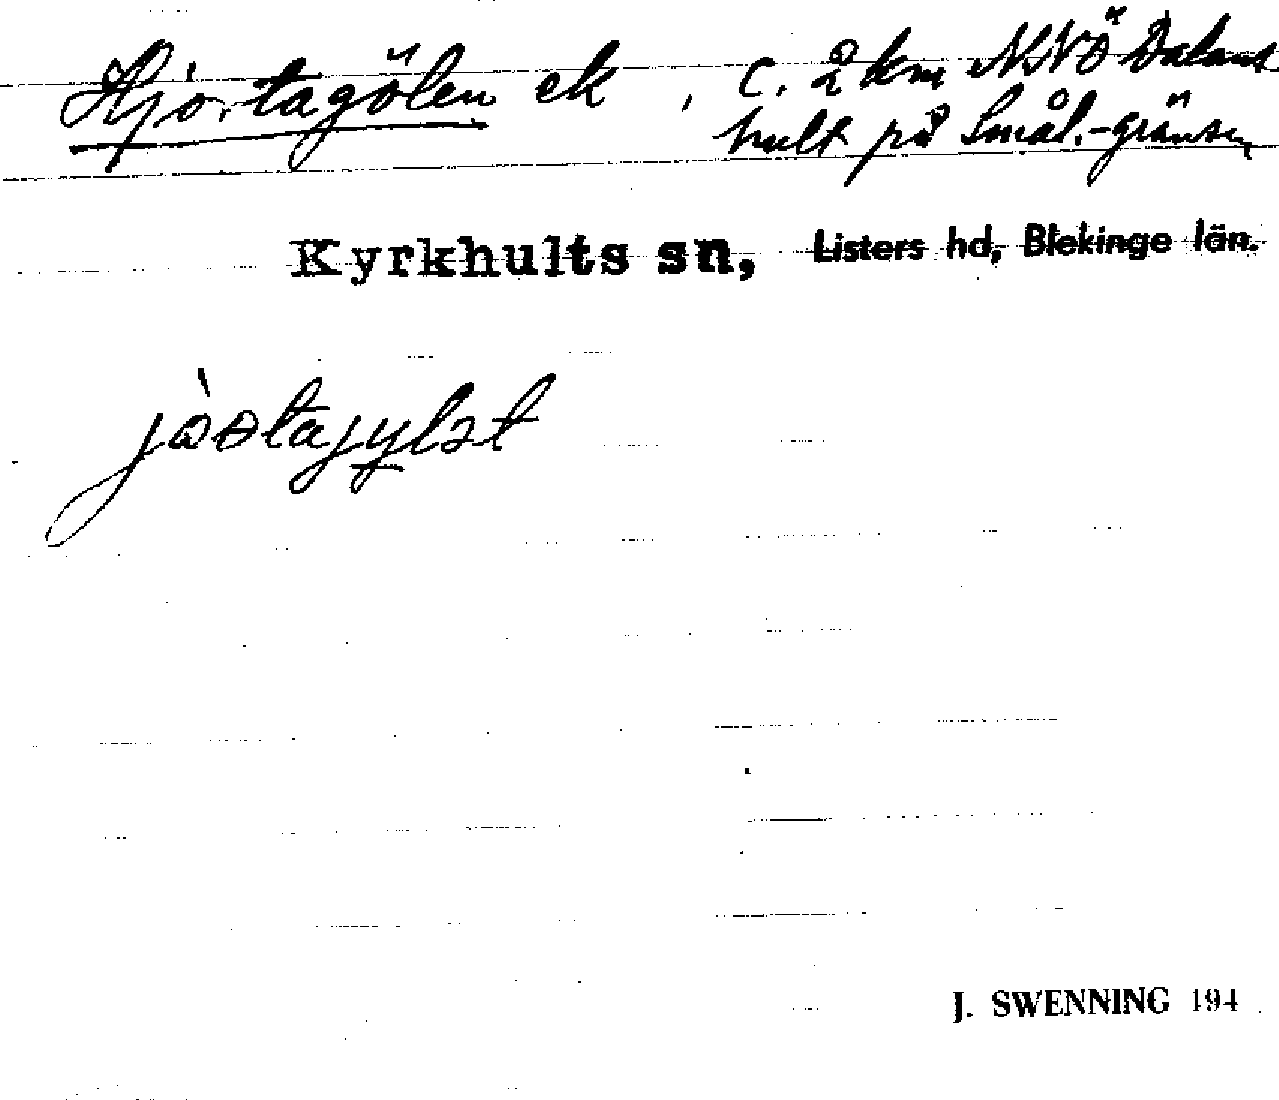 Hjortagölen ek , c. 2 km NNÖ Dalans-
hult på Smål.-gränsen
Kyrkhults sn, Listers hd, Blekinge län.
J. SWENNING 194